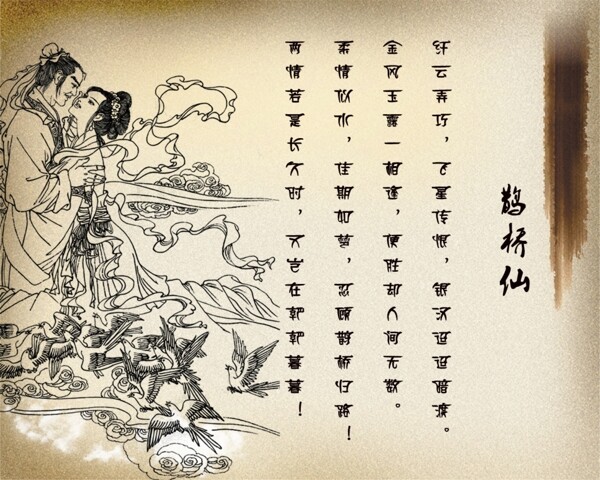 鹊桥仙
纤云弄巧，飞星传恨，银汉迢迢暗渡。
金风玉露一相逢，便胜却人间无数。
柔情似水，佳期如梦，忍顾鹊桥归路！
两情若是长久时，又岂在朝朝暮暮！